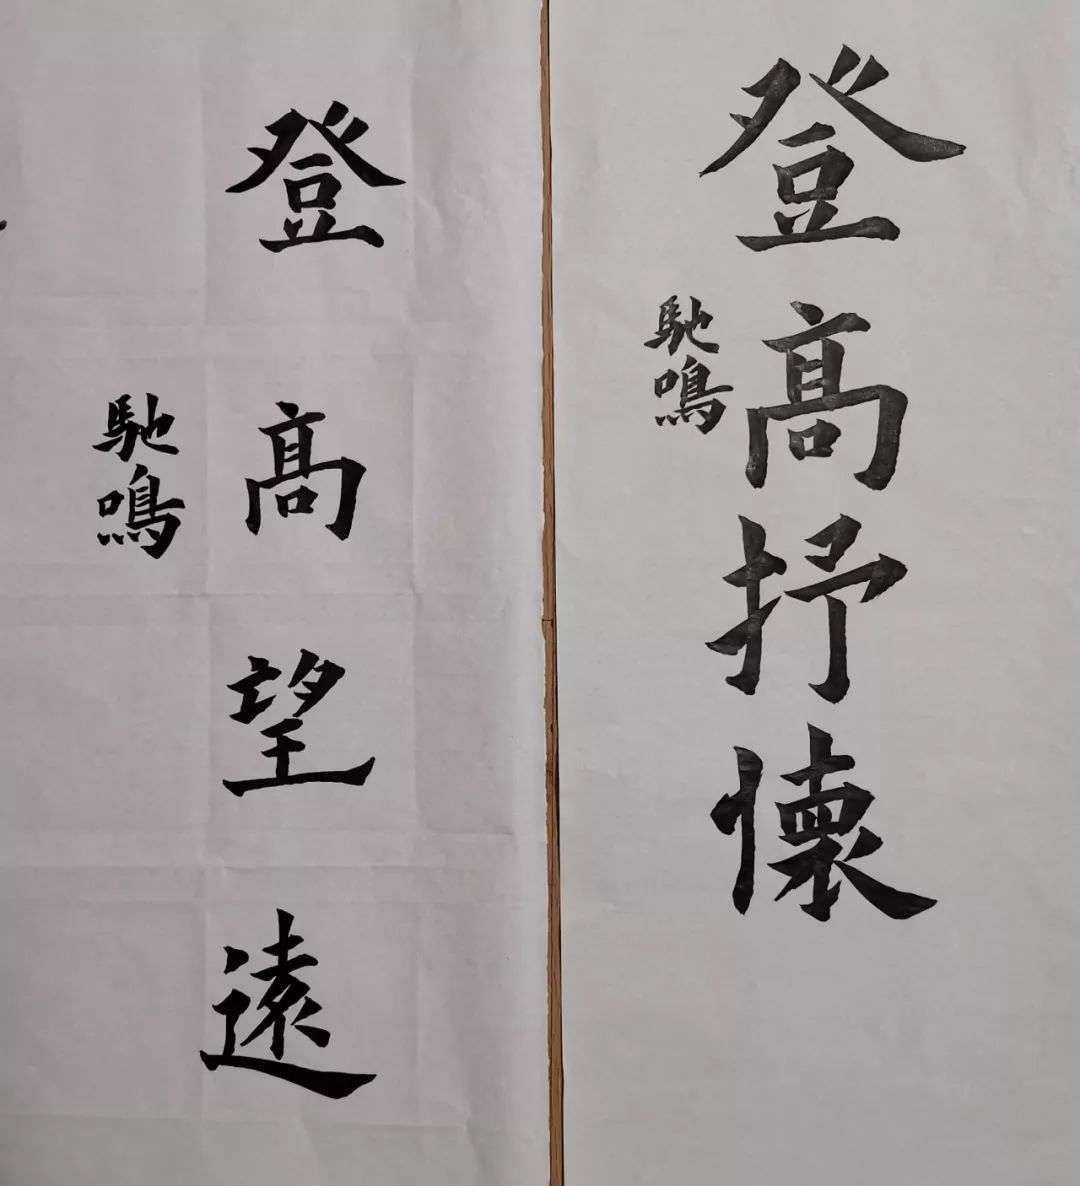 登高抒懷
馳鳴
登髙望遠
馳鳴